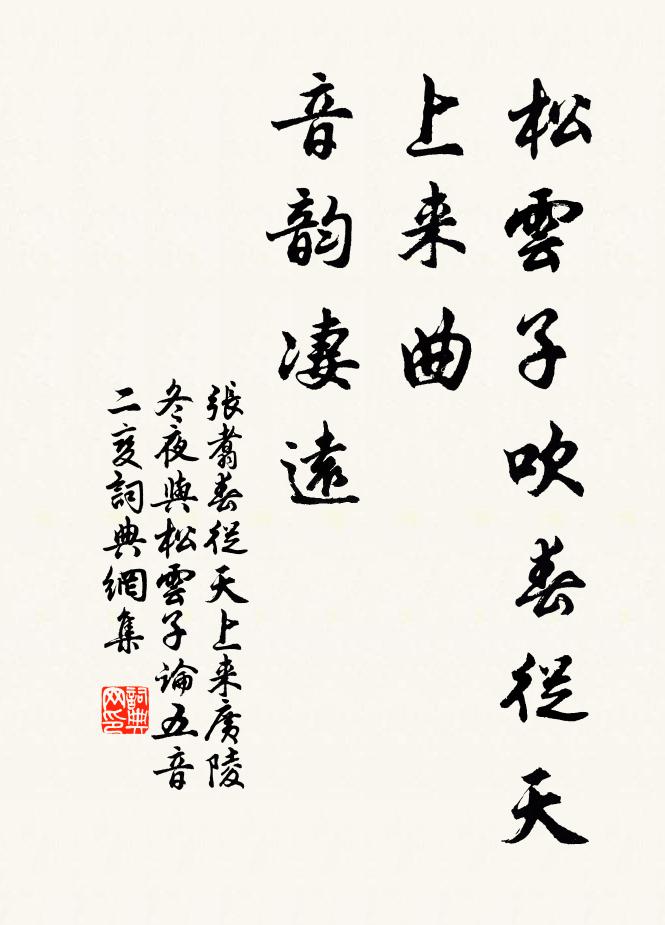 松雲子吹春從天
上来曲
音韵凄遠
張翥春從天上来廣陵
冬夜與松雲子論五音
二变詞典網集
詞典网印